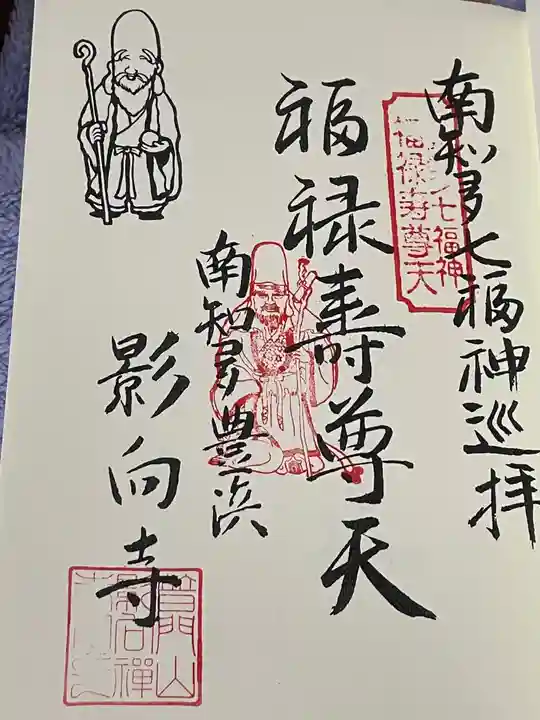 南知多七福神巡拝
七福神
福禄寿尊天
福禄壽尊天
南知多豊浜
影向寺